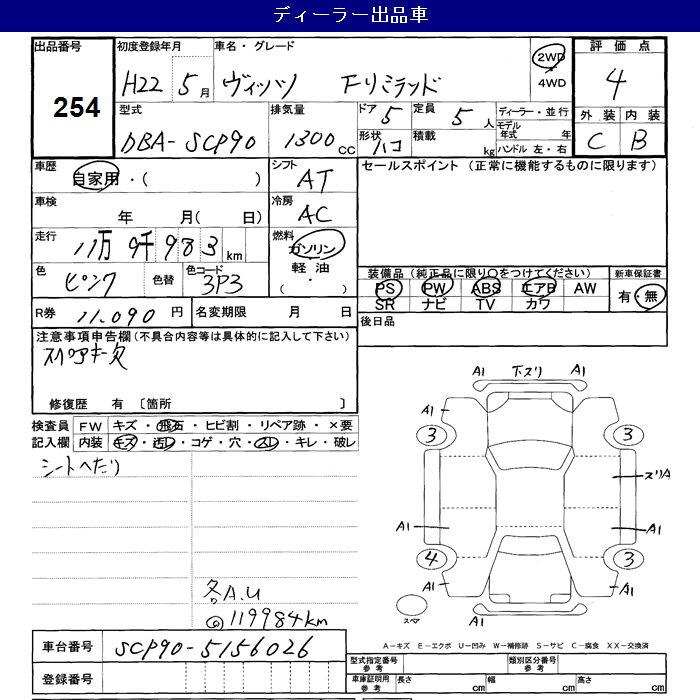 ディーラー出品車
出品番号
254
初度登録年月
H22 5月
車名・グレード
ヴィッツ Fリミテッド
2WD
4WD
評価点
4
外装 内装
C B
型式
DBA-SCP90
排気量
1300cc
ドア 5
形状 ハコ
定員 5人
積載 kg
ディーラー・並行
モデル年式 年
ハンドル 左・右
車歴
自家用・( )
シフト
AT
セールスポイント (正常に機能するものに限ります)
車検
年 月( 日)
冷房
AC
走行
11万 9千 983km
燃料
ガソリン
軽油
・( )
色
ピンク
色替
色コード
3P3
装備品 (純正品に限り○をつけてください)
PS PW ABS エアB AW
SR ナビ TV カワ
新車保証書
有・無
R券 11,090円
名変期限 月 日
後日品
注意事項申告欄(不具合内容等は具体的に記入して下さい)
スペアキー欠
修復歴 有 〔箇所 〕
検査員記入欄
FW キズ・飛石・ヒビ割・リペア跡・×要
内装 キズ・汚レ・コゲ・穴・スレ・キレ・破レ
シートヘたり
各A.U
@119984km
A1 下スリ A1
A1 A1
3 3
スリA
A1 A1
4 3
A1 A1
スペア A1
車台番号
SCP90-5156026
登録番号
A-キズ E-エクボ U-凹み W-補修跡 S-サビ C-腐食 XX-交換済
型式指定番号 参考
類別区分番号 参考
車庫証明用 参考
長さ cm
幅 cm
高さ cm